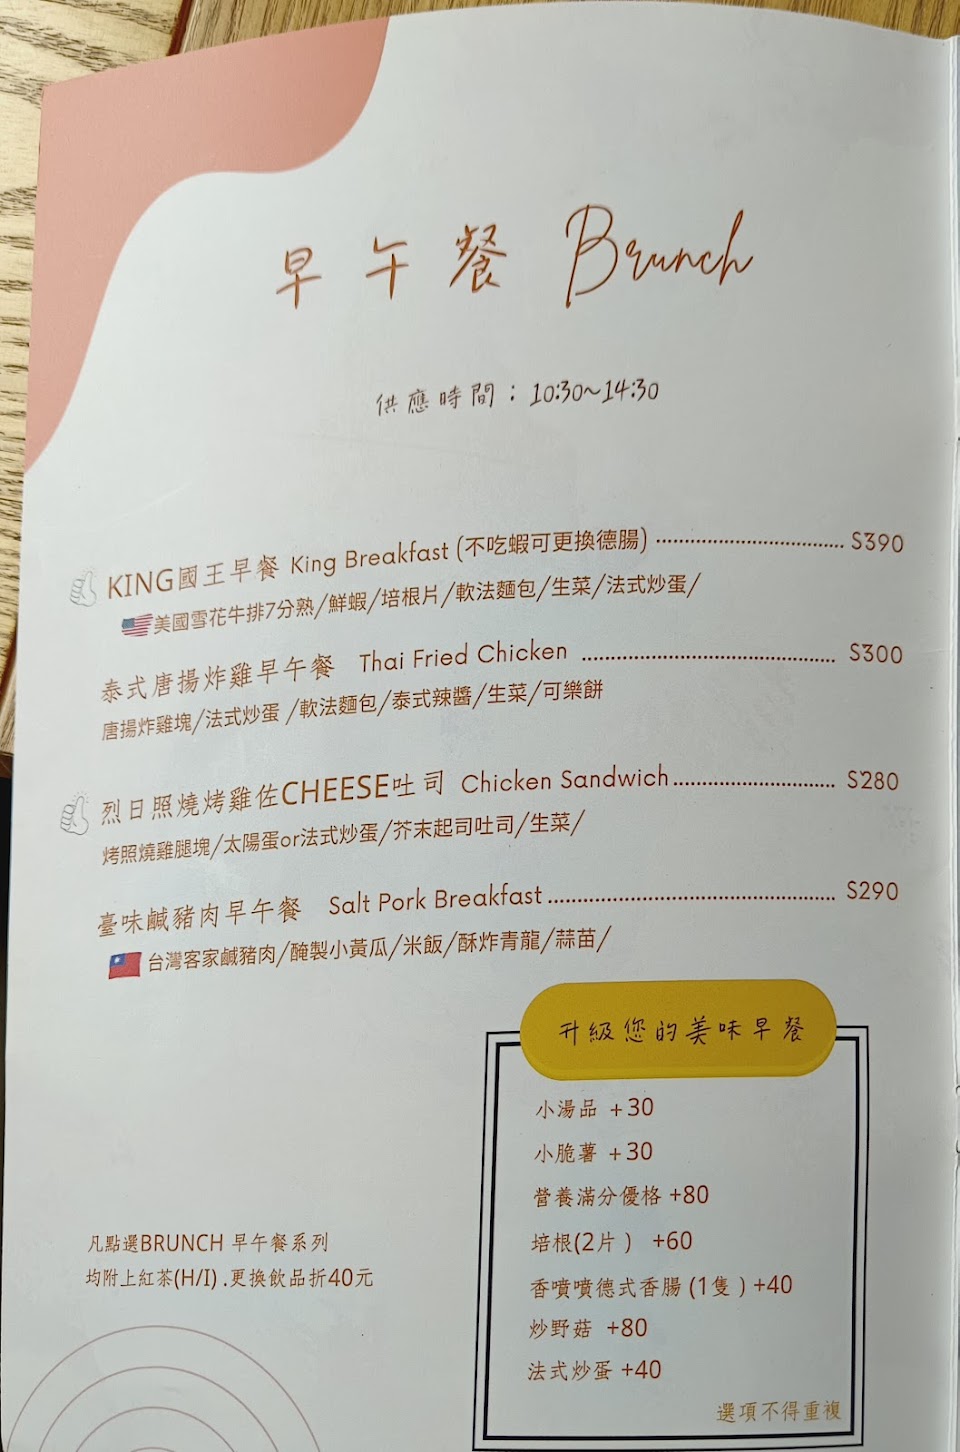 早午餐 Brunch
供應時間：10:30~14:30
KING國王早餐 King Breakfast (不吃蝦可更換德腸) $390
美國雪花牛排7分熟/鮮蝦/培根片/軟法麵包/生菜/法式炒蛋/
泰式唐揚炸雞早午餐 Thai Fried Chicken $300
唐揚炸雞塊/法式炒蛋/軟法麵包/泰式辣醬/生菜/可樂餅
烈日照燒烤雞佐CHEESE吐司 Chicken Sandwich $280
烤照燒雞腿塊/太陽蛋or法式炒蛋/芥末起司吐司/生菜/
臺味鹹豬肉早午餐 Salt Pork Breakfast $290
台灣客家鹹豬肉/醃製小黃瓜/米飯/酥炸青龍/蒜苗/
升級您的美味早餐
小湯品 +30
小脆薯 +30
營養滿分優格 +80
培根(2片) +60
香噴噴德式香腸 (1隻) +40
炒野菇 +80
法式炒蛋 +40
選項不得重複
凡點選BRUNCH 早午餐系列
均附上紅茶(H/I) .更換飲品折40元